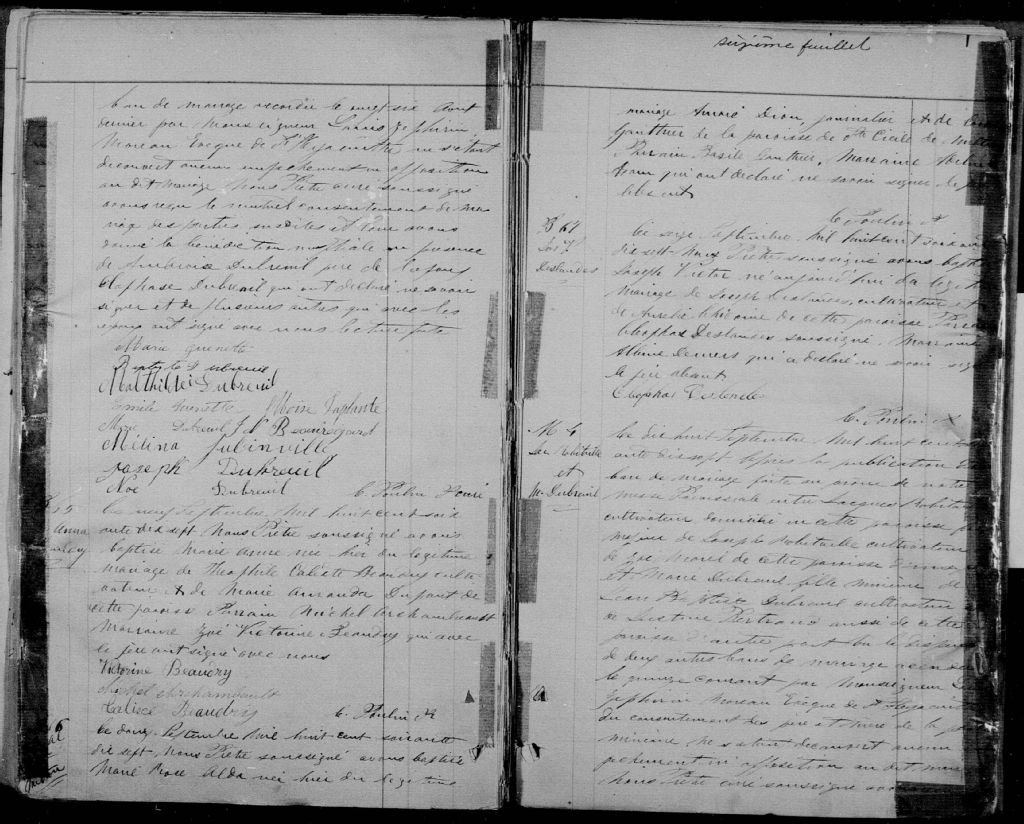 ban de mariage accordée le onzième Aout
dernier par Monseigneur Louis Zéphirin
Moreau Evêque de St Hyacinthe ne s'étant
découvert aucun empêchement ni opposition
au dit mariage Nous Prêtre curé soussigné
avons reçu le mutuel consentement de ma
riage des parties susdites et leur avons
donné la bénédiction nuptiale en présence
de Ambroise Dubreuil père de
Cléophase Dubreuil qui ont déclaré ne savoir
signer et de plusieurs autres qui avec les
époux ont signé avec nous lecture faite
Marie Guenette
Dubreuil
Mathilde Dubreuil
Emile Guenette Moise Laplante
Marie Dubreuil J N Beauregard
Mélina Jubinville
Joseph Dubreuil
Noé Dubreuil C. Poulin
B 65
Anna
Le neuf Septembre Mil huit cent soix
ante dix sept Nous Prêtre soussigné avons
baptisé Marie Anne née hier du légitime
mariage de Théophile Caliste Beaudry culti-
vateur & de Marie Amanda Dupont de
cette paroisse Parrain Michel Archambault
Marraine Zoé Victorine Beaudry qui avec
le père ont signé avec nous
Victorine Beaudry
Michel Archambault
Calisse Beaudry C. Poulin
6
Le douze Septembre Mil huit cent soixante
dix sept, Nous Prêtre soussigné avons baptisé
Marie Rose Alda née hier du légitime
sixième feuillet
mariage Dion, journalier & de
Gauthier de la paroisse de Ste Cécile de
Parrain Basile Gauthier, Marraine
qui ont déclaré ne savoir signer le père
absent
C. Poulin
B 67
Jos. V.
Deslandes
Le seize Septembre Mil huit cent soixante
dix sept Nous Prêtre soussigné avons baptisé
Joseph Victor né aujourd'hui du légitime
mariage de Joseph Deslandes, cultivateur et
de Aurélie de cette paroisse Parrain
Cléophas Deslandes soussigné, Marraine
Albina Demers qui a déclaré ne savoir signer
le père absent
Cleophas Deslandes
C. Poulin
M 4
Robitaille
et
M. Dubreuil
Le dix huit Septembre Mil huit cent
ante dix sept après la publication
ban de mariage faite au prône de notre
messe Paroissiale entre Jacques Robitaille
cultivateur domicilié en cette paroisse
mineur de Joseph Robitaille cultivateur
de Zoé de cette paroisse d'une part
et Marie Dubreuil fille mineure de
Jean Bte Dubreuil cultivateur
de Justine Bertrand aussi de cette
paroisse d'autre part vu la dispense
de deux autres bans de mariage accordée
le quinze courant par Monseigneur
Zéphirin Moreau Evêque de St Hyacinthe
du consentement des père et mère de la
mineure ne s'étant découvert aucun
pêchement ni opposition au dit mariage
Nous Prêtre curé soussigné avons